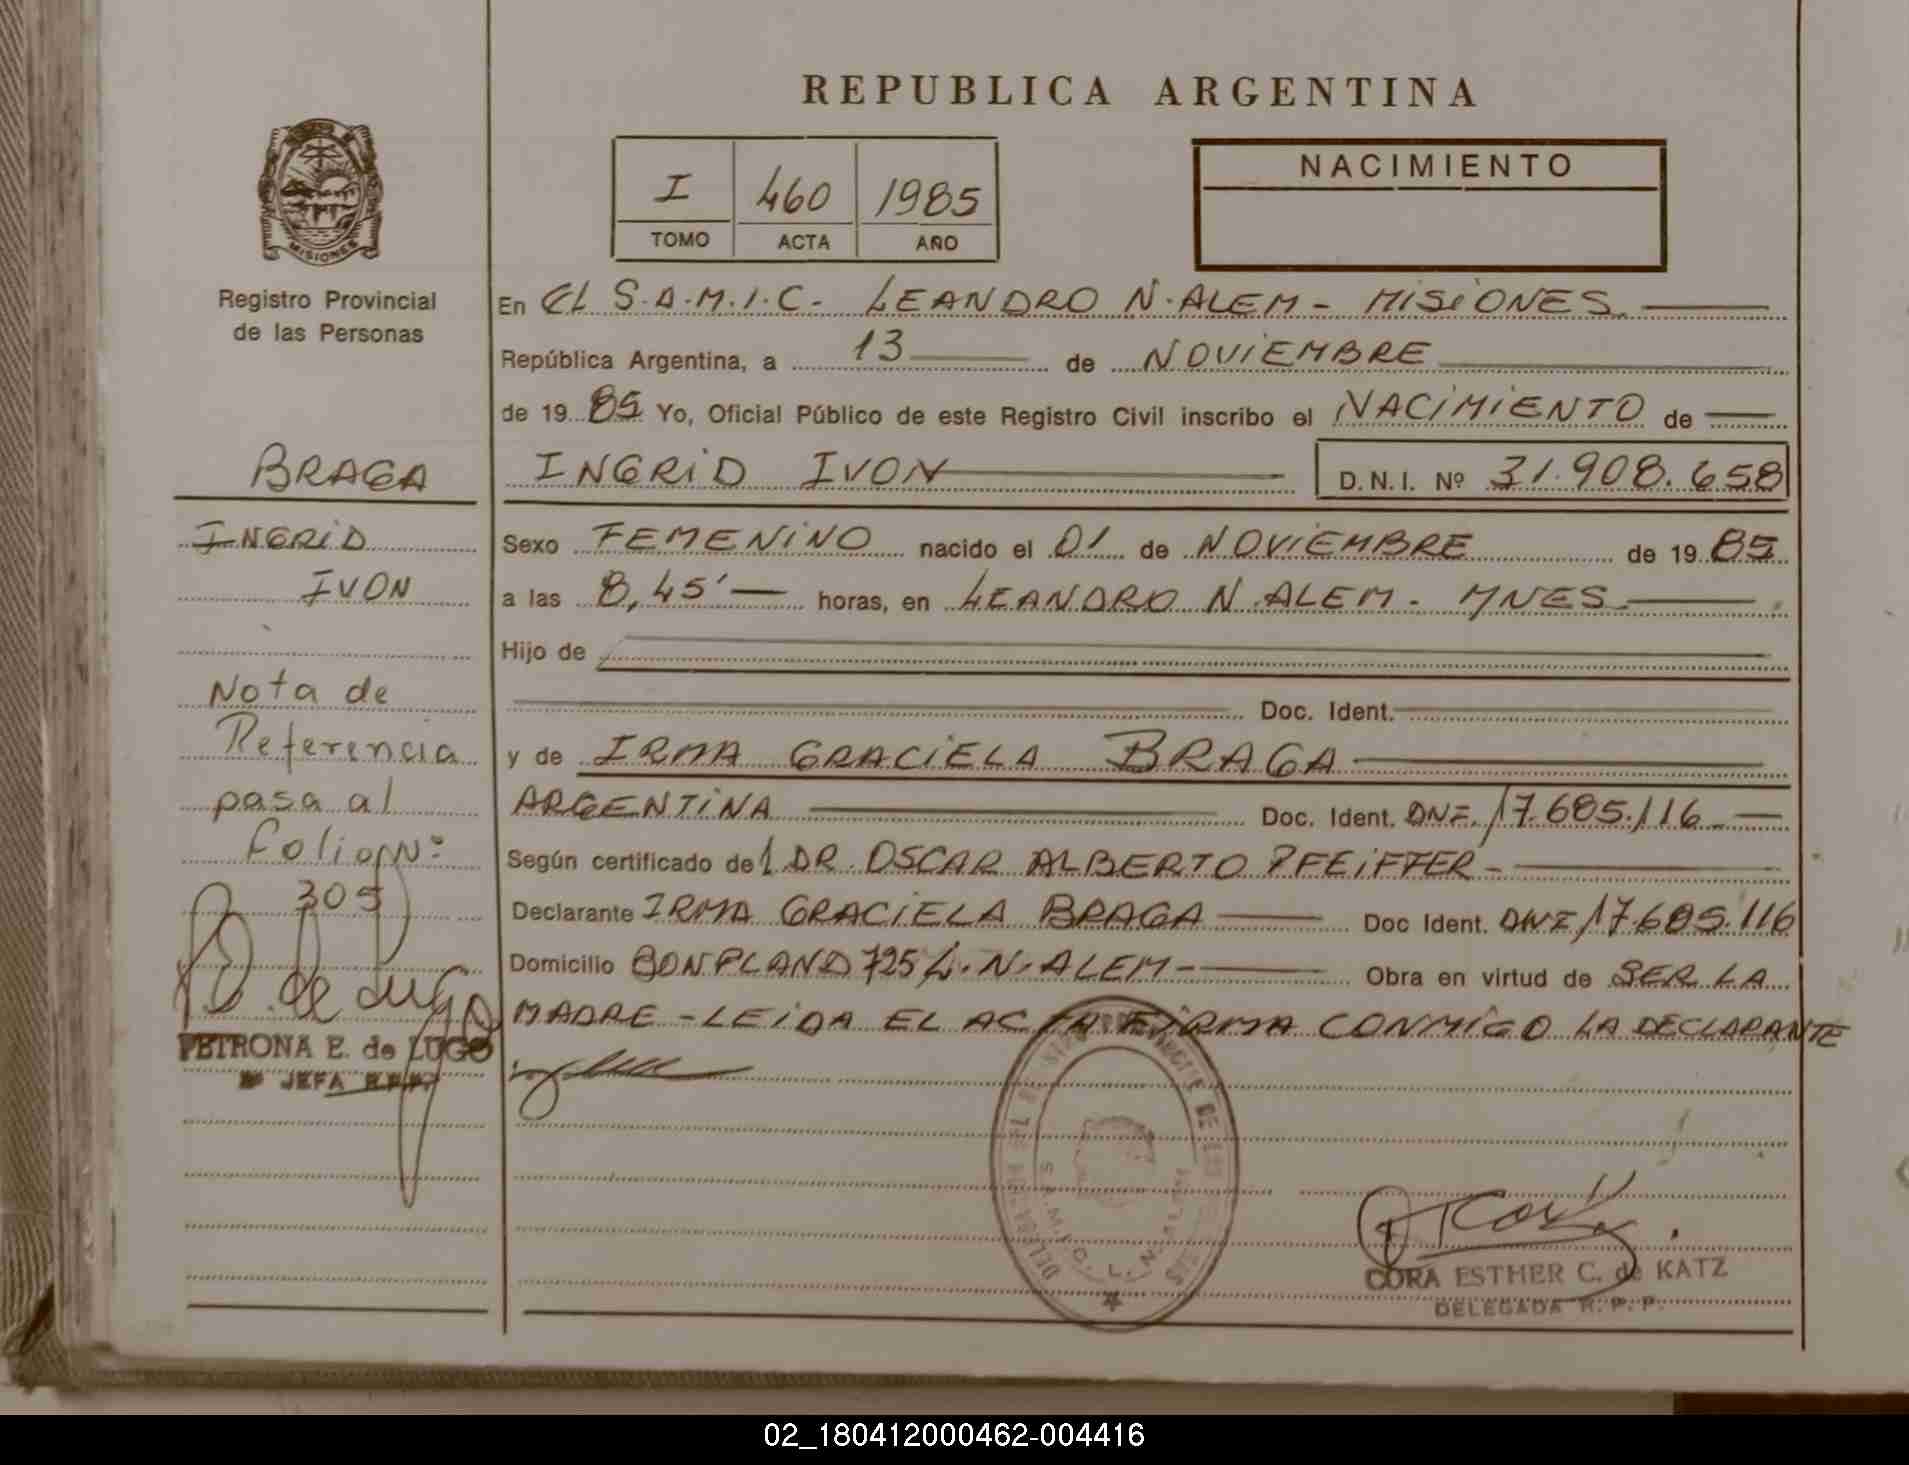 REPUBLICA ARGENTINA
MISIONES
Registro Provincial
de las Personas
I 460 1985
TOMO ACTA AÑO
NACIMIENTO
En EL S.A.M.I.C. LEANDRO N. ALEM - MISIONES
República Argentina, a 13 de NOVIEMBRE
de 1985 Yo, Oficial Público de este Registro Civil inscribo el NACIMIENTO de
INGRID IVON D.N.I. Nº 31.908.658
Sexo FEMENINO nacido el 01 de NOVIEMBRE de 1985
a las 8,45' horas, en LEANDRO N. ALEM - MNES
Hijo de
Doc. Ident.
y de IRMA GRACIELA BRAGA
ARGENTINA Doc. Ident. DNI. 17.685.116
Según certificado del DR. OSCAR ALBERTO PFEIFFER -
Declarante IRMA GRACIELA BRAGA Doc Ident. DNI 17.685.116
Domicilio BONPLAND 725 L.N. ALEM - Obra en virtud de SER LA
MADRE - LEIDA EL ACTA FIRMA CONMIGO LA DECLARANTE
BRAGA
INGRID
IVON
Nota de
Referencia
pasa al
folio Nº
305
de Lugo
PETRONA E. de LUGO
JEFA R.P.P.
S.A.M.I.C. L.N. ALEM
CORA ESTHER C. de KATZ
DELEGADA R.P.P.
02_180412000462-004416